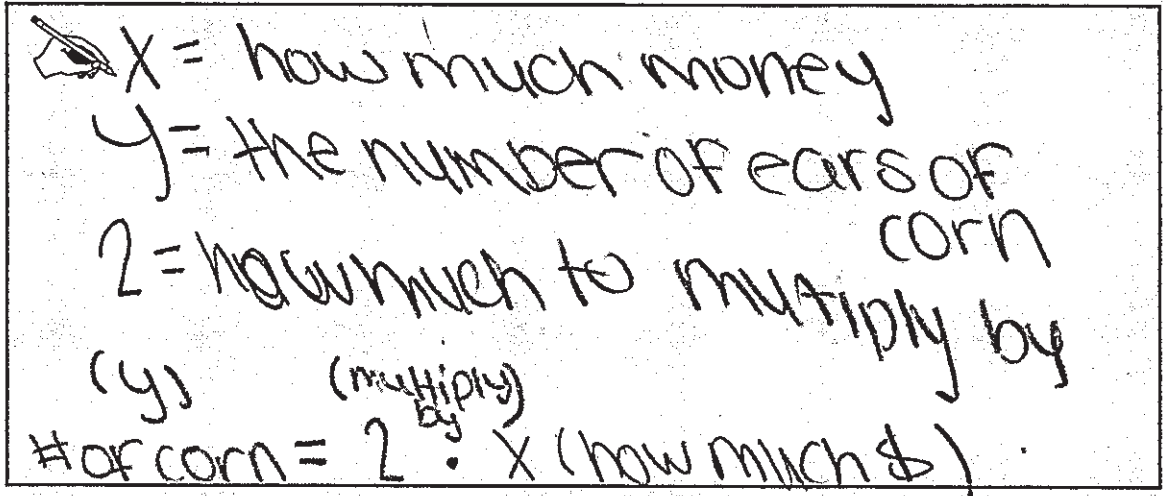 X = how much money
y = the number of ears of
corn
2 = how much to multiply by
(y) (multiply)
by
# of corn = 2 • X (how much $)